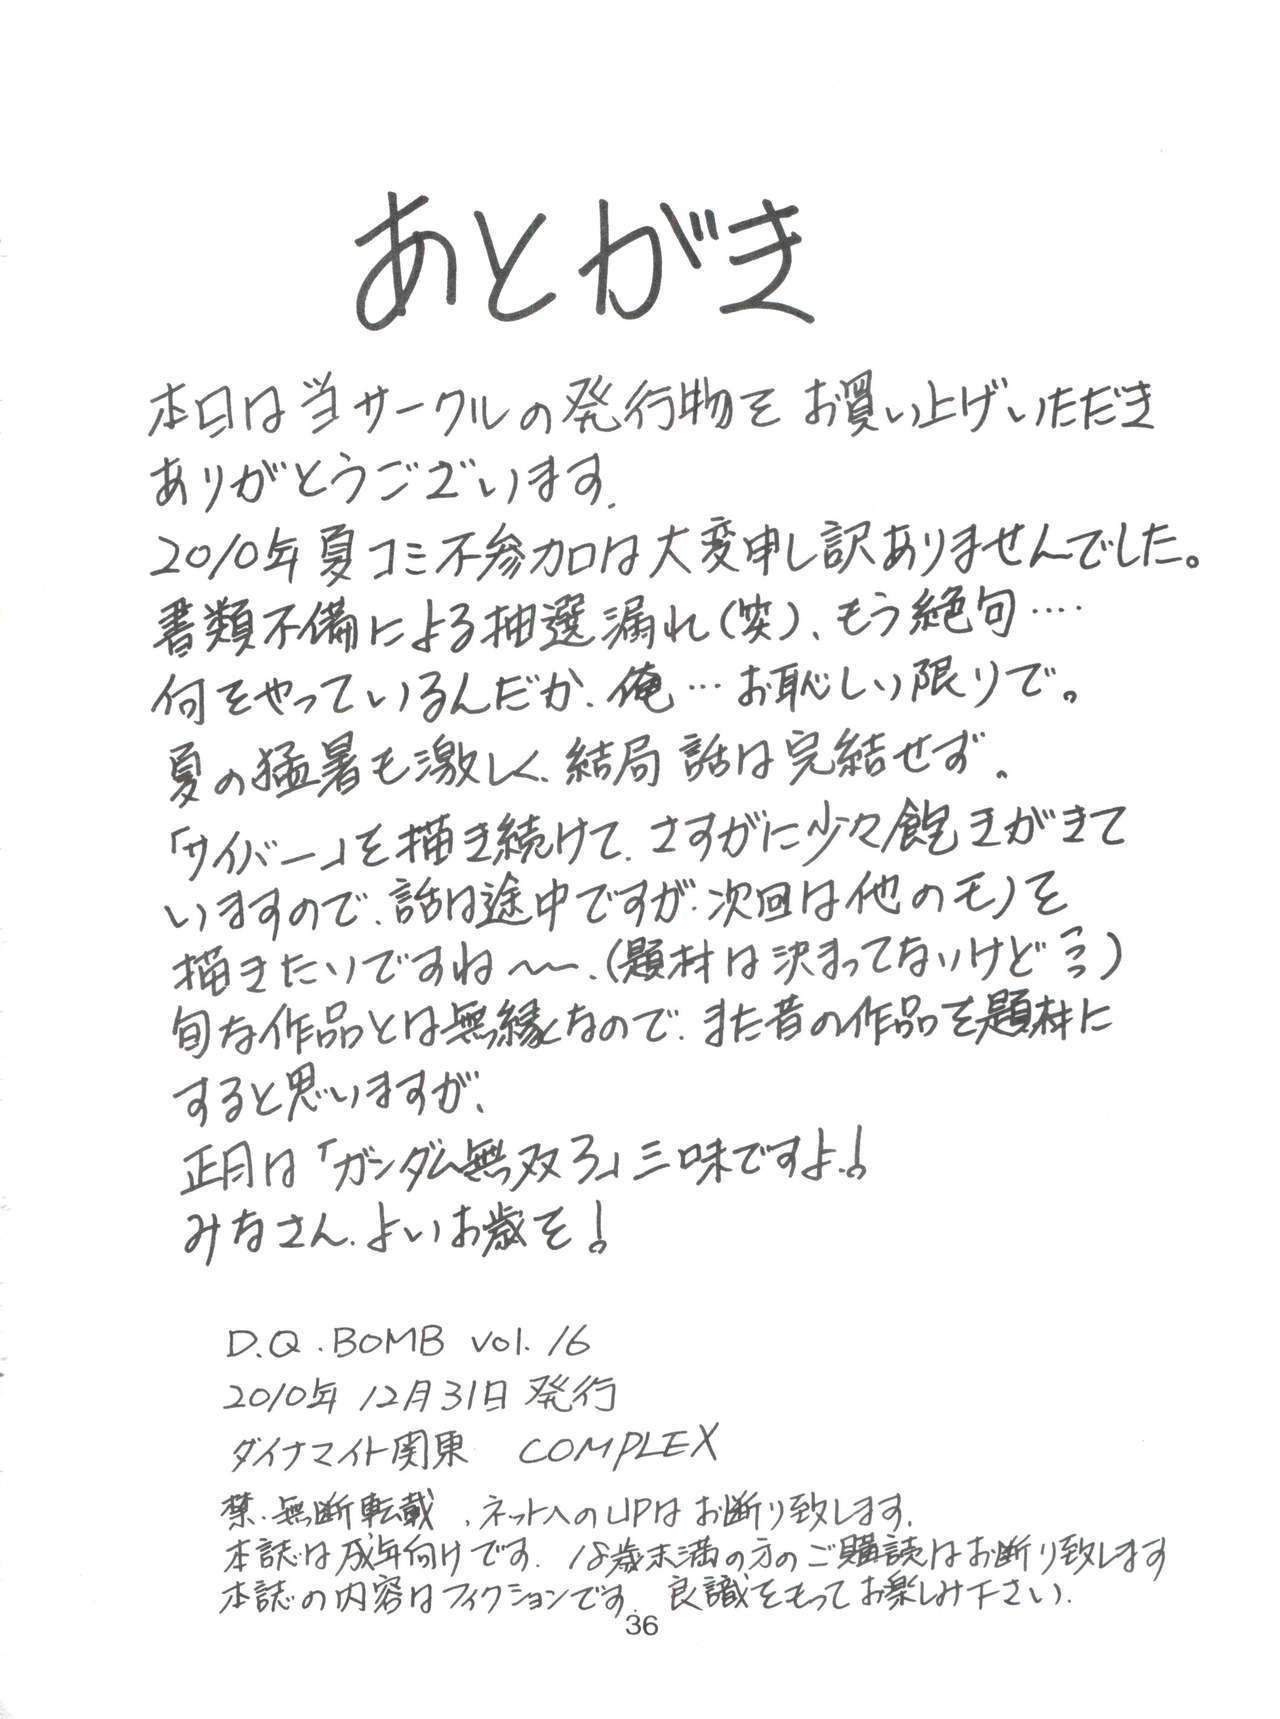 あとがき
本日は当サークルの発行物をお買い上げいただき
ありがとうございます.
2010年夏コミ不参加は大変申し訳ありませんでした。
書類不備による抽選漏れ(笑)、もう絶句‥‥
何をやっているんだか、俺…お恥しい限りで。
夏の猛暑も激しく、結局話は完結せず。
「サイバー」を描き続けて、さすがに少々飽きがきて
いますので、話は途中ですが、次回は他のモノを
描きたいですね〜〜、(題材は決まってないけど)
旬な作品とは無縁なので、また昔の作品を題材に
すると思いますが、
正月は「ガンダム無双3」三昧ですよ!
みなさん、よいお歳を!
D.Q.BOMB vol.16
2010年 12月31日発行
ダイナマイト関東 COMPLEX
禁・無断転載、ネットへのUPはお断り致します.
本誌は成年向けです. 18歳未満の方のご購読はお断り致します
本誌の内容はフィクションです. 良識をもってお楽しみ下さい.
36